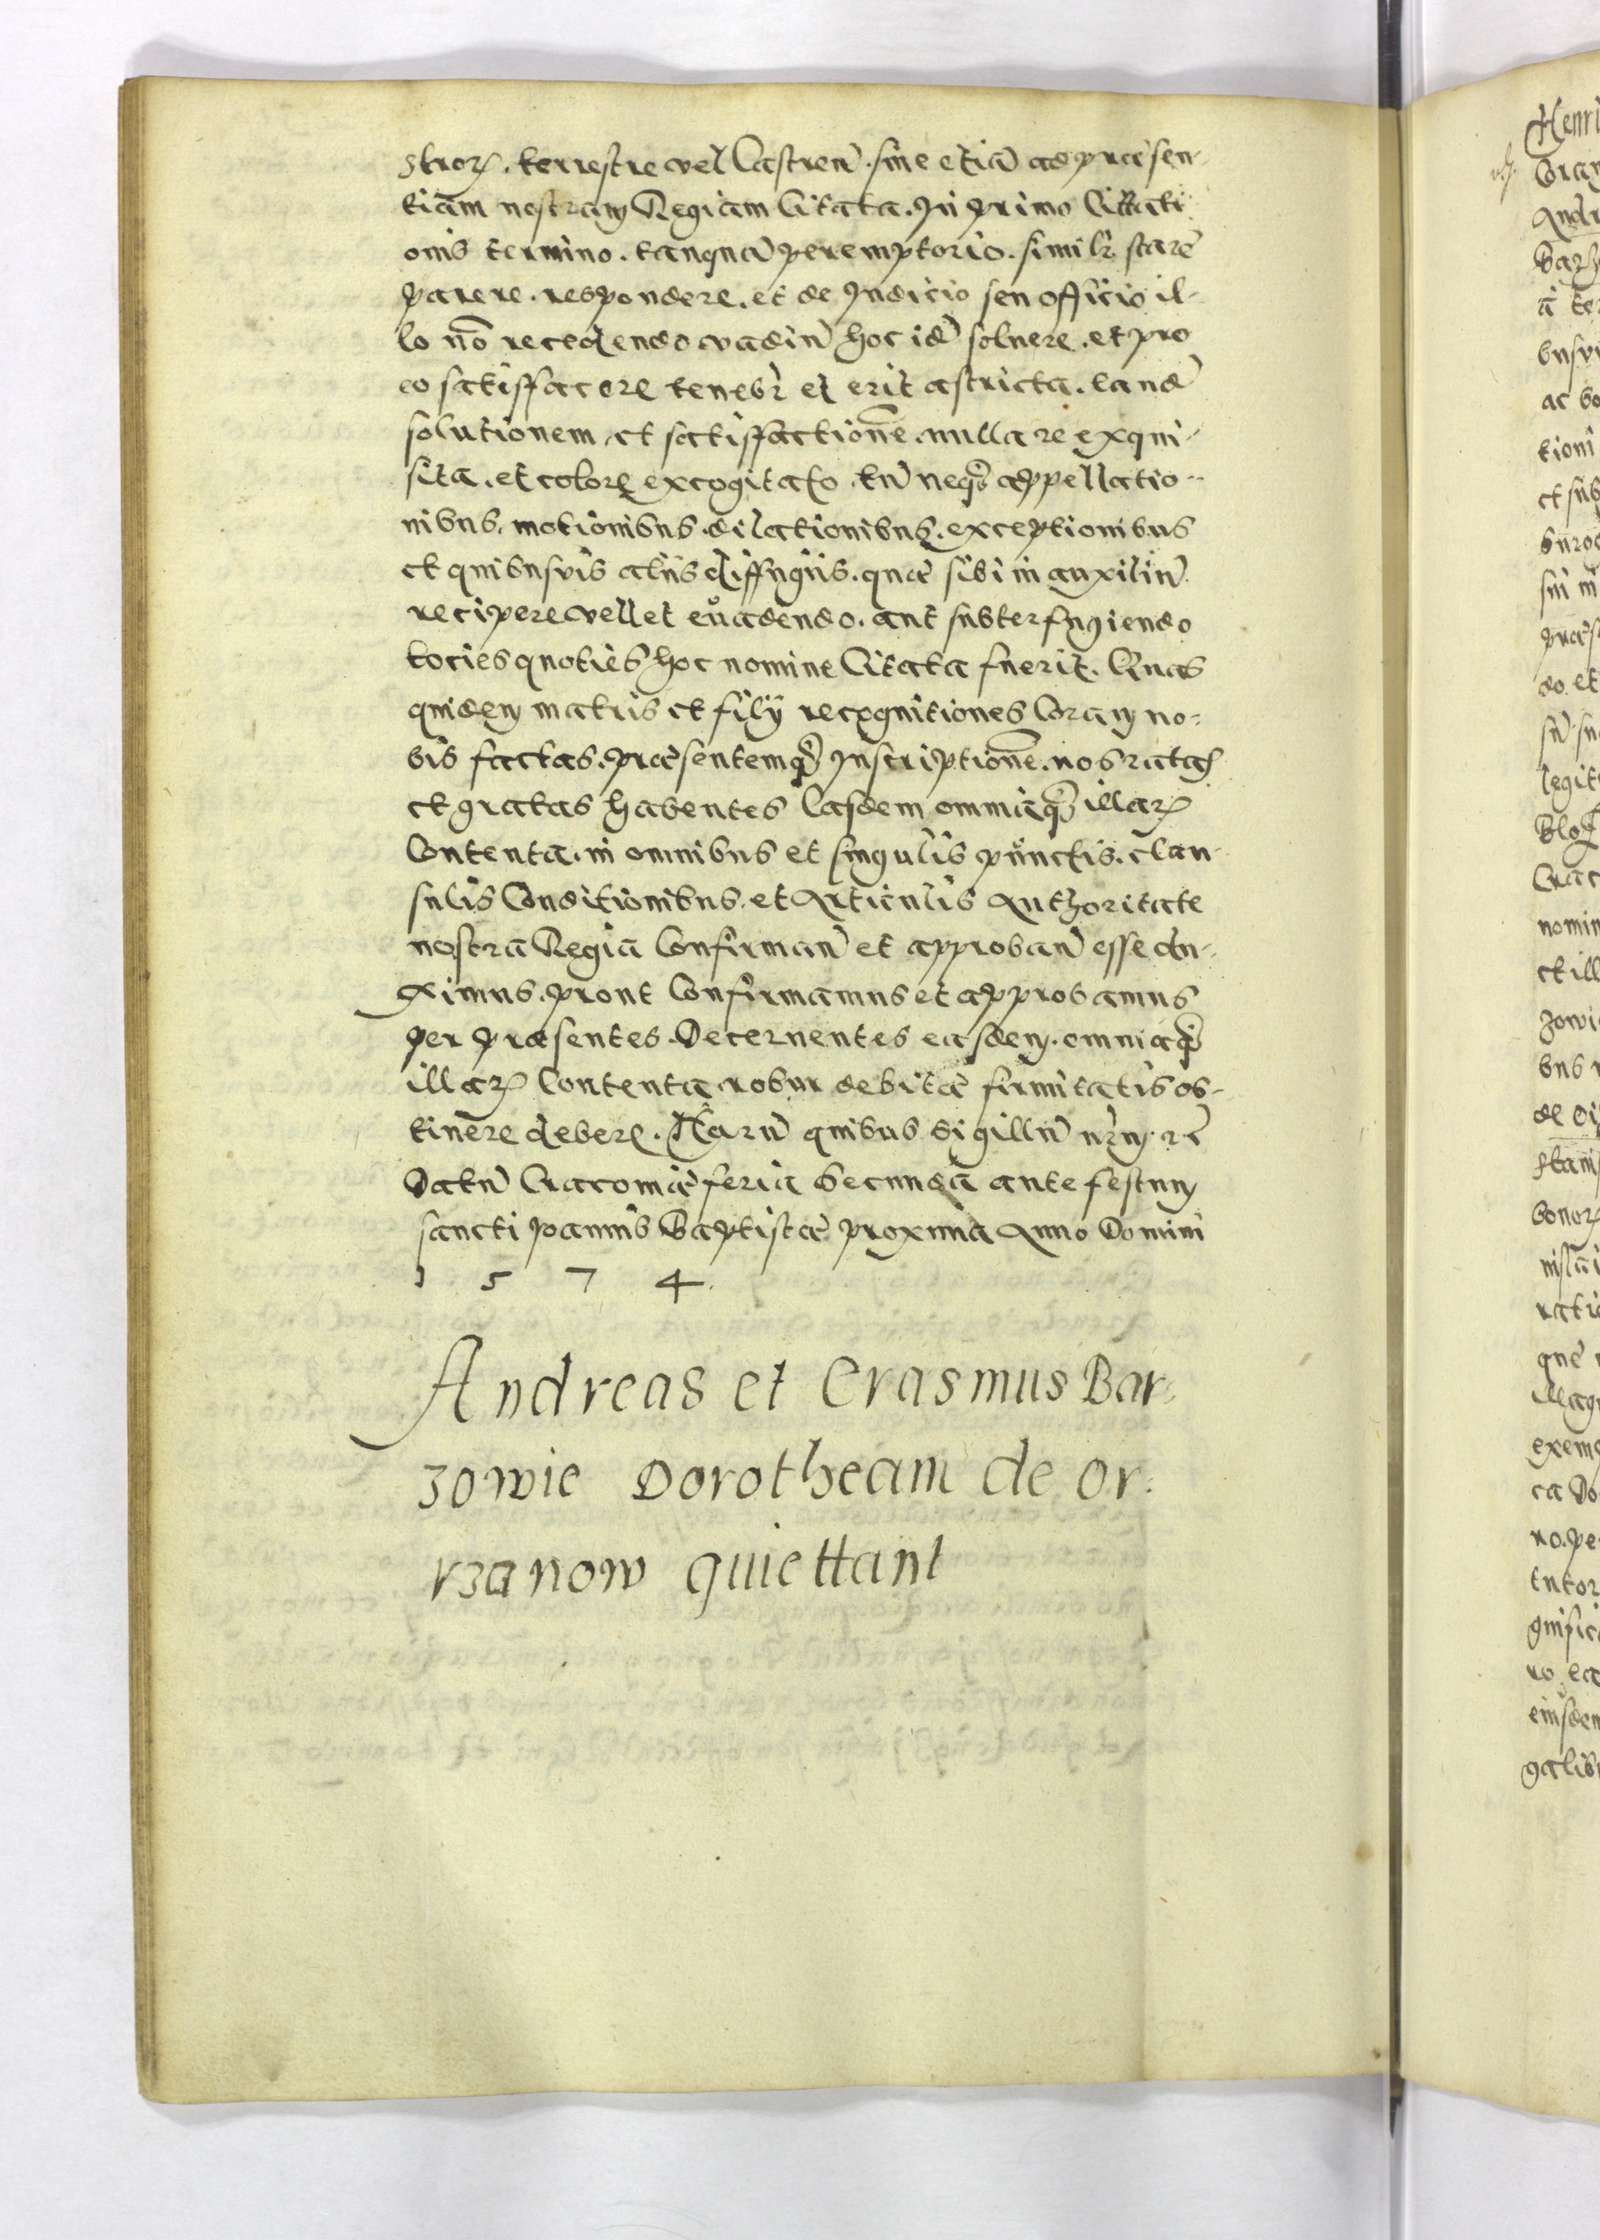 stroꝝ. terrestre vel Castren̄. siue etiā ad præsen-
tiam nostram Regiam Citata. In primo Cittati
onis termino. tanquā peremptorio. simil̄r stare
parere. respondere. et de Iudicio seu officio il-
lo nō recedendo vadiū hoc idē soluere. et pro
eo satisffacere tenebr̄ et erit astricta. eandē
solutionem et satisffactionē. nulla re exqui-
sita. et colore excogitato tn̄ neqꝫ appellatio-
nibus. motionibus. dilactionibus. exceptionibus
et quibusuis alijs diffugijs. quæ sibi in auxiliū
recipere vellet euadendo. aut subterfugiendo
tocies quoties hoc nomine Citata fuerit. Quas
quidem matris et filij recognitiones Coram no-
bis factas. præsentemqꝫ Inscriptionē. nos ratas
et gratas habentes Easdem omniaqꝫ illaꝝ
Contenta. in omnibus et singulis punctis. clau-
sulis Conditionibus. et Articulis Authoritate
nostra Regia Confirman̄ et approban̄ esse du-
ximus. prout Confirmamus et approbamus
per præsentes. Decernentes easdem. omniaqꝫ
illaꝝ Contenta robur debitæ firmitatis ob-
tinere debere. Harū quibus sigillū nr̄m. rc̄
Datū Cracouiæ feria Secunda ante festum
sancti Joannis Baptistæ proxima Anno Domini
1 5 7 4.
Andreas et Erasmus Bar-
zowie Dorotheam de Or-
rzanow quiettant
Henri
Coram
Andr
Barz
à ter
busvi
ac bo
tioni
et sub
suroc
sui in
præs
do. et
sn̄ su
legit
Crac
nomin
et ill
zowi
bus
de
stani
bonoꝝ
ratio
que
exem
ca Do
ro. pe
tutor
gnific
ro. ea
eiusdem
galib